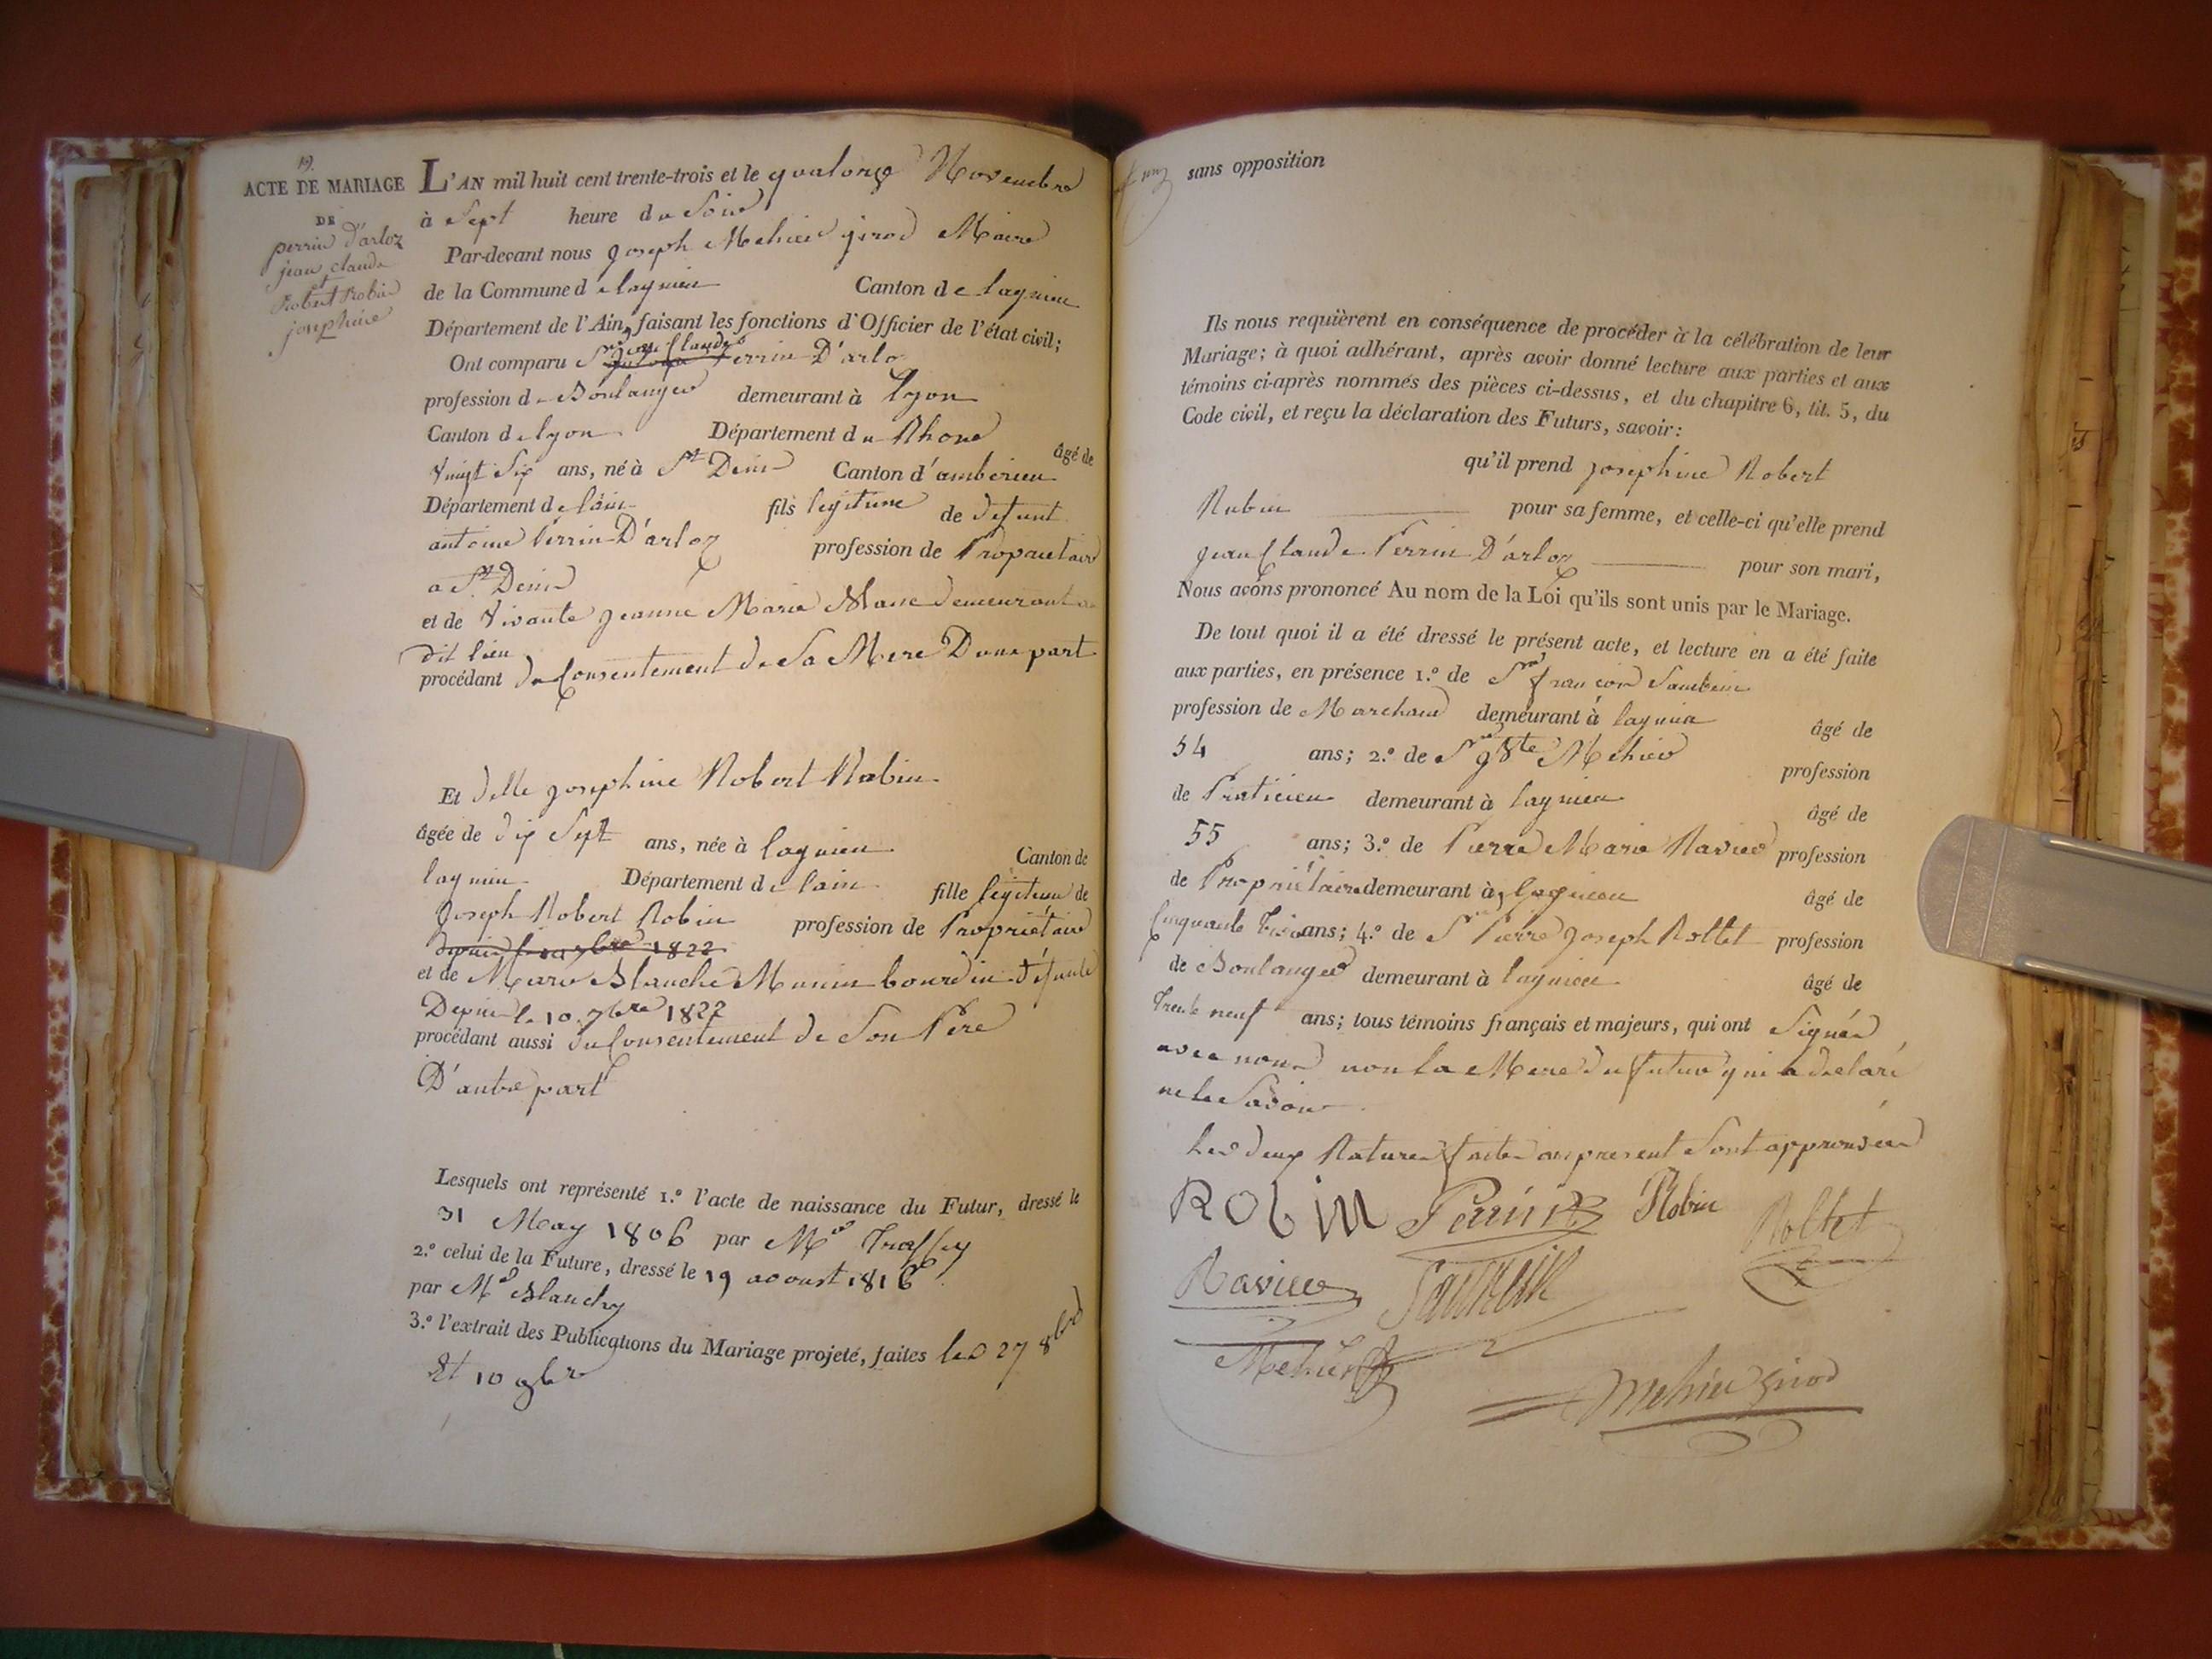 19.
ACTE DE MARIAGE
DE
perrin d'arloz
jean claude
et
Robert Robin
josephine
L'AN mil huit cent trente-trois et le quatorze Novembre
à Sept heure du Soir
Par-devant nous joseph Mehier girod Maire
de la Commune de lagnieu Canton de lagnieu
Département de l'Ain, faisant les fonctions d'Officier de l'état civil;
Ont comparu Sr jean Claude Perrin D'arloz
profession de Boulanger demeurant à lyon
Canton de lyon Département du Rhone âgé de
vingt Six ans, né à St Denis Canton d'ambérieu
Département de l'ain fils legitime de defunt
antoine Perrin D'arloz profession de Propriétaire
a St Denis
et de vivante jeanne Marie Blanc demeurant au
dit lieu
procédant du Consentement de Sa Mere D'une part
Et delle josephine Robert Robin
âgée de dix Sept ans, née à lagnieu Canton de
lagnieu Département de l'ain fille legitime de
Joseph Robert Robin profession de Propriétaire
depuis le 10 7bre 1822
et de Marie Blanche Monin bourdin défunte
Depuis le 10 7bre 1822
procédant aussi du Consentement de Son Pere
D'autre part
Lesquels ont représenté 1.º l'acte de naissance du Futur, dressé le
31 May 1806 par Mr Traffey
2.º celui de la Future, dressé le 19 avoust 1816
par Mr Blanchy
3.º l'extrait des Publications du Mariage projeté, faites les 27 8bre
Et 10 9bre
sans opposition
Ils nous requièrent en conséquence de procéder à la célébration de leur
Mariage; à quoi adhérant, après avoir donné lecture aux parties et aux
témoins ci-après nommés des pièces ci-dessus, et du chapitre 6, tit. 5, du
Code civil, et reçu la déclaration des Futurs, savoir:
qu'il prend josephine Robert
Robin pour sa femme, et celle-ci qu'elle prend
jean Claude Perrin D'arloz pour son mari,
Nous avons prononcé Au nom de la Loi qu'ils sont unis par le Mariage.
De tout quoi il a été dressé le présent acte, et lecture en a été faite
aux parties, en présence 1.º de Sr françois Santein
profession de Marchand demeurant à lagnieu âgé de
54 ans; 2.º de Sr jBte Mehier profession
de Praticien demeurant à lagnieu âgé de
55 ans; 3.º de Pierre Marie Ravier profession
de Propriétaire demeurant à lagnieu âgé de
Cinquante trois ans; 4.º de Sr Pierre Joseph Rottet profession
de Boulanger demeurant à lagnieu âgé de
Trente neuf ans; tous témoins français et majeurs, qui ont Signés
avec nous non la Mere du futur qui a déclaré
ne le Savoir
Les deux Ratures faites au present Sont approuvées
RObiN Perrin Robin Rottet
Ravier
Mehier
Mehier girod